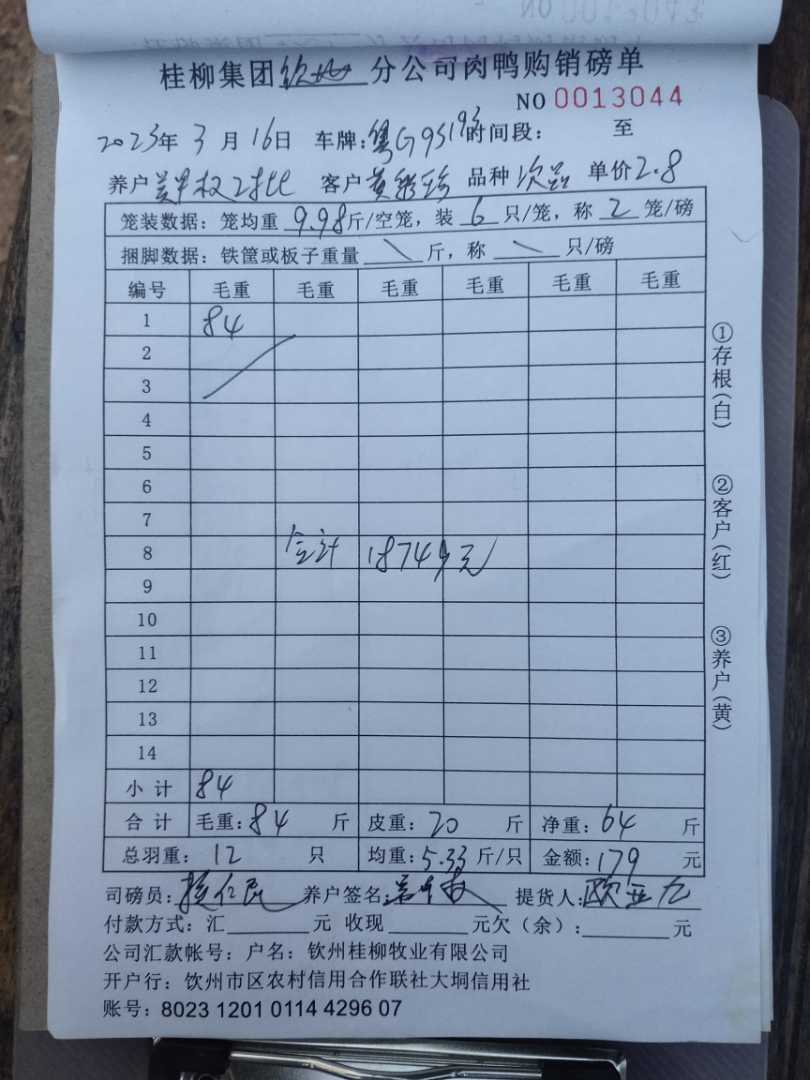 桂柳集团钦州分公司肉鸭购销磅单
NO 0013044
2023年 3 月 16日 车牌:粤G95193 时间段: 至
养户 客户黄 品种 次品 单价2.8
笼装数据: 笼均重 9.98斤/空笼, 装 6 只/笼, 称 2 笼/磅
捆脚数据: 铁筐或板子重量 \ 斤, 称 \ 只/磅
编号 毛重 毛重 毛重 毛重 毛重 毛重
1 84
2
3
4
5
6
7
8 合计 18749元
9
10
11
12
13
14
小 计 84
合 计 毛重: 84 斤 皮重: 20 斤 净重: 64 斤
总羽重: 12 只 均重: 5.33 斤/只 金额: 179 元
司磅员: 养户签名: 提货人: 欧亚九
付款方式: 汇 元 收现 元欠(余): 元
公司汇款帐号: 户名: 钦州桂柳牧业有限公司
开户行: 钦州市区农村信用合作联社大垌信用社
账号: 8023 1201 0114 4296 07
①存根(白)
②客户(红)
③养户(黄)